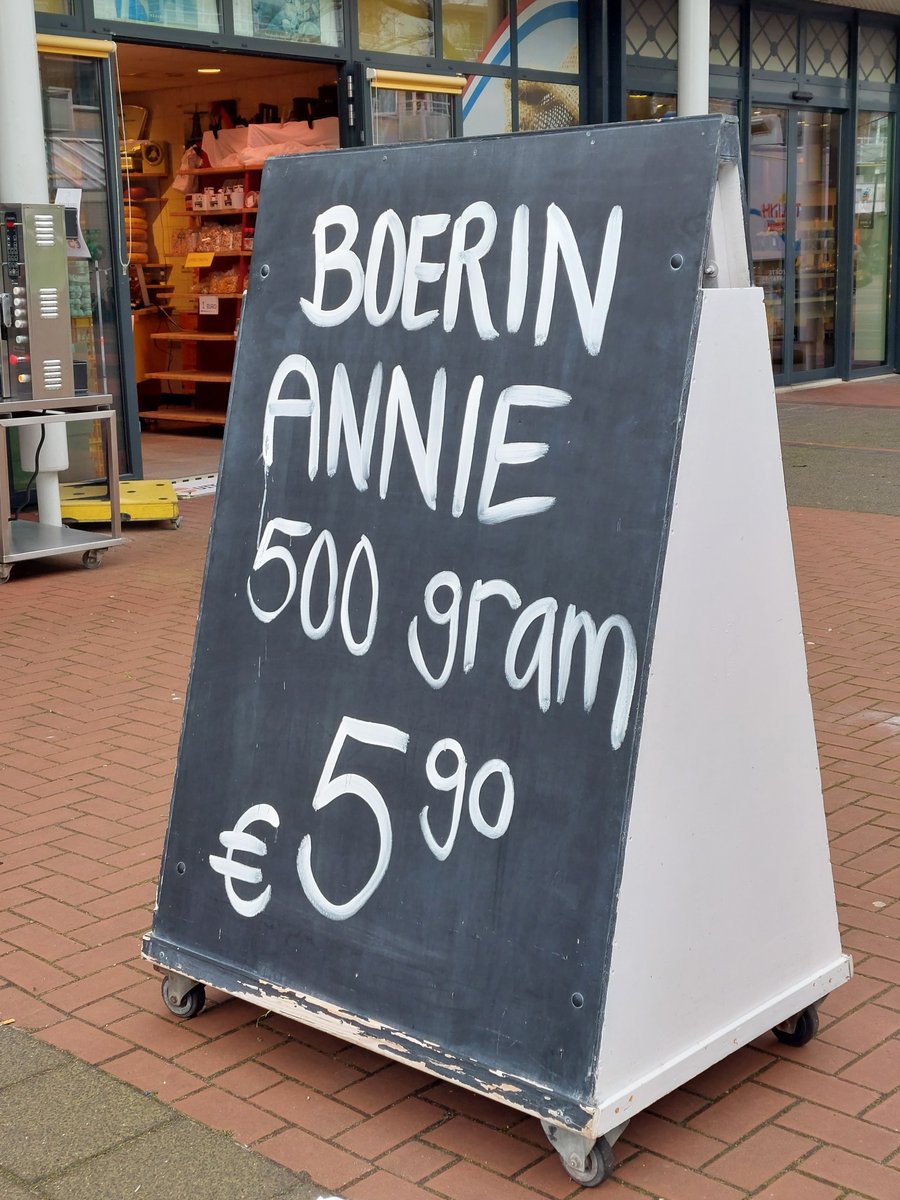 BOERIN
ANNIE
500 gram
€ 5 90